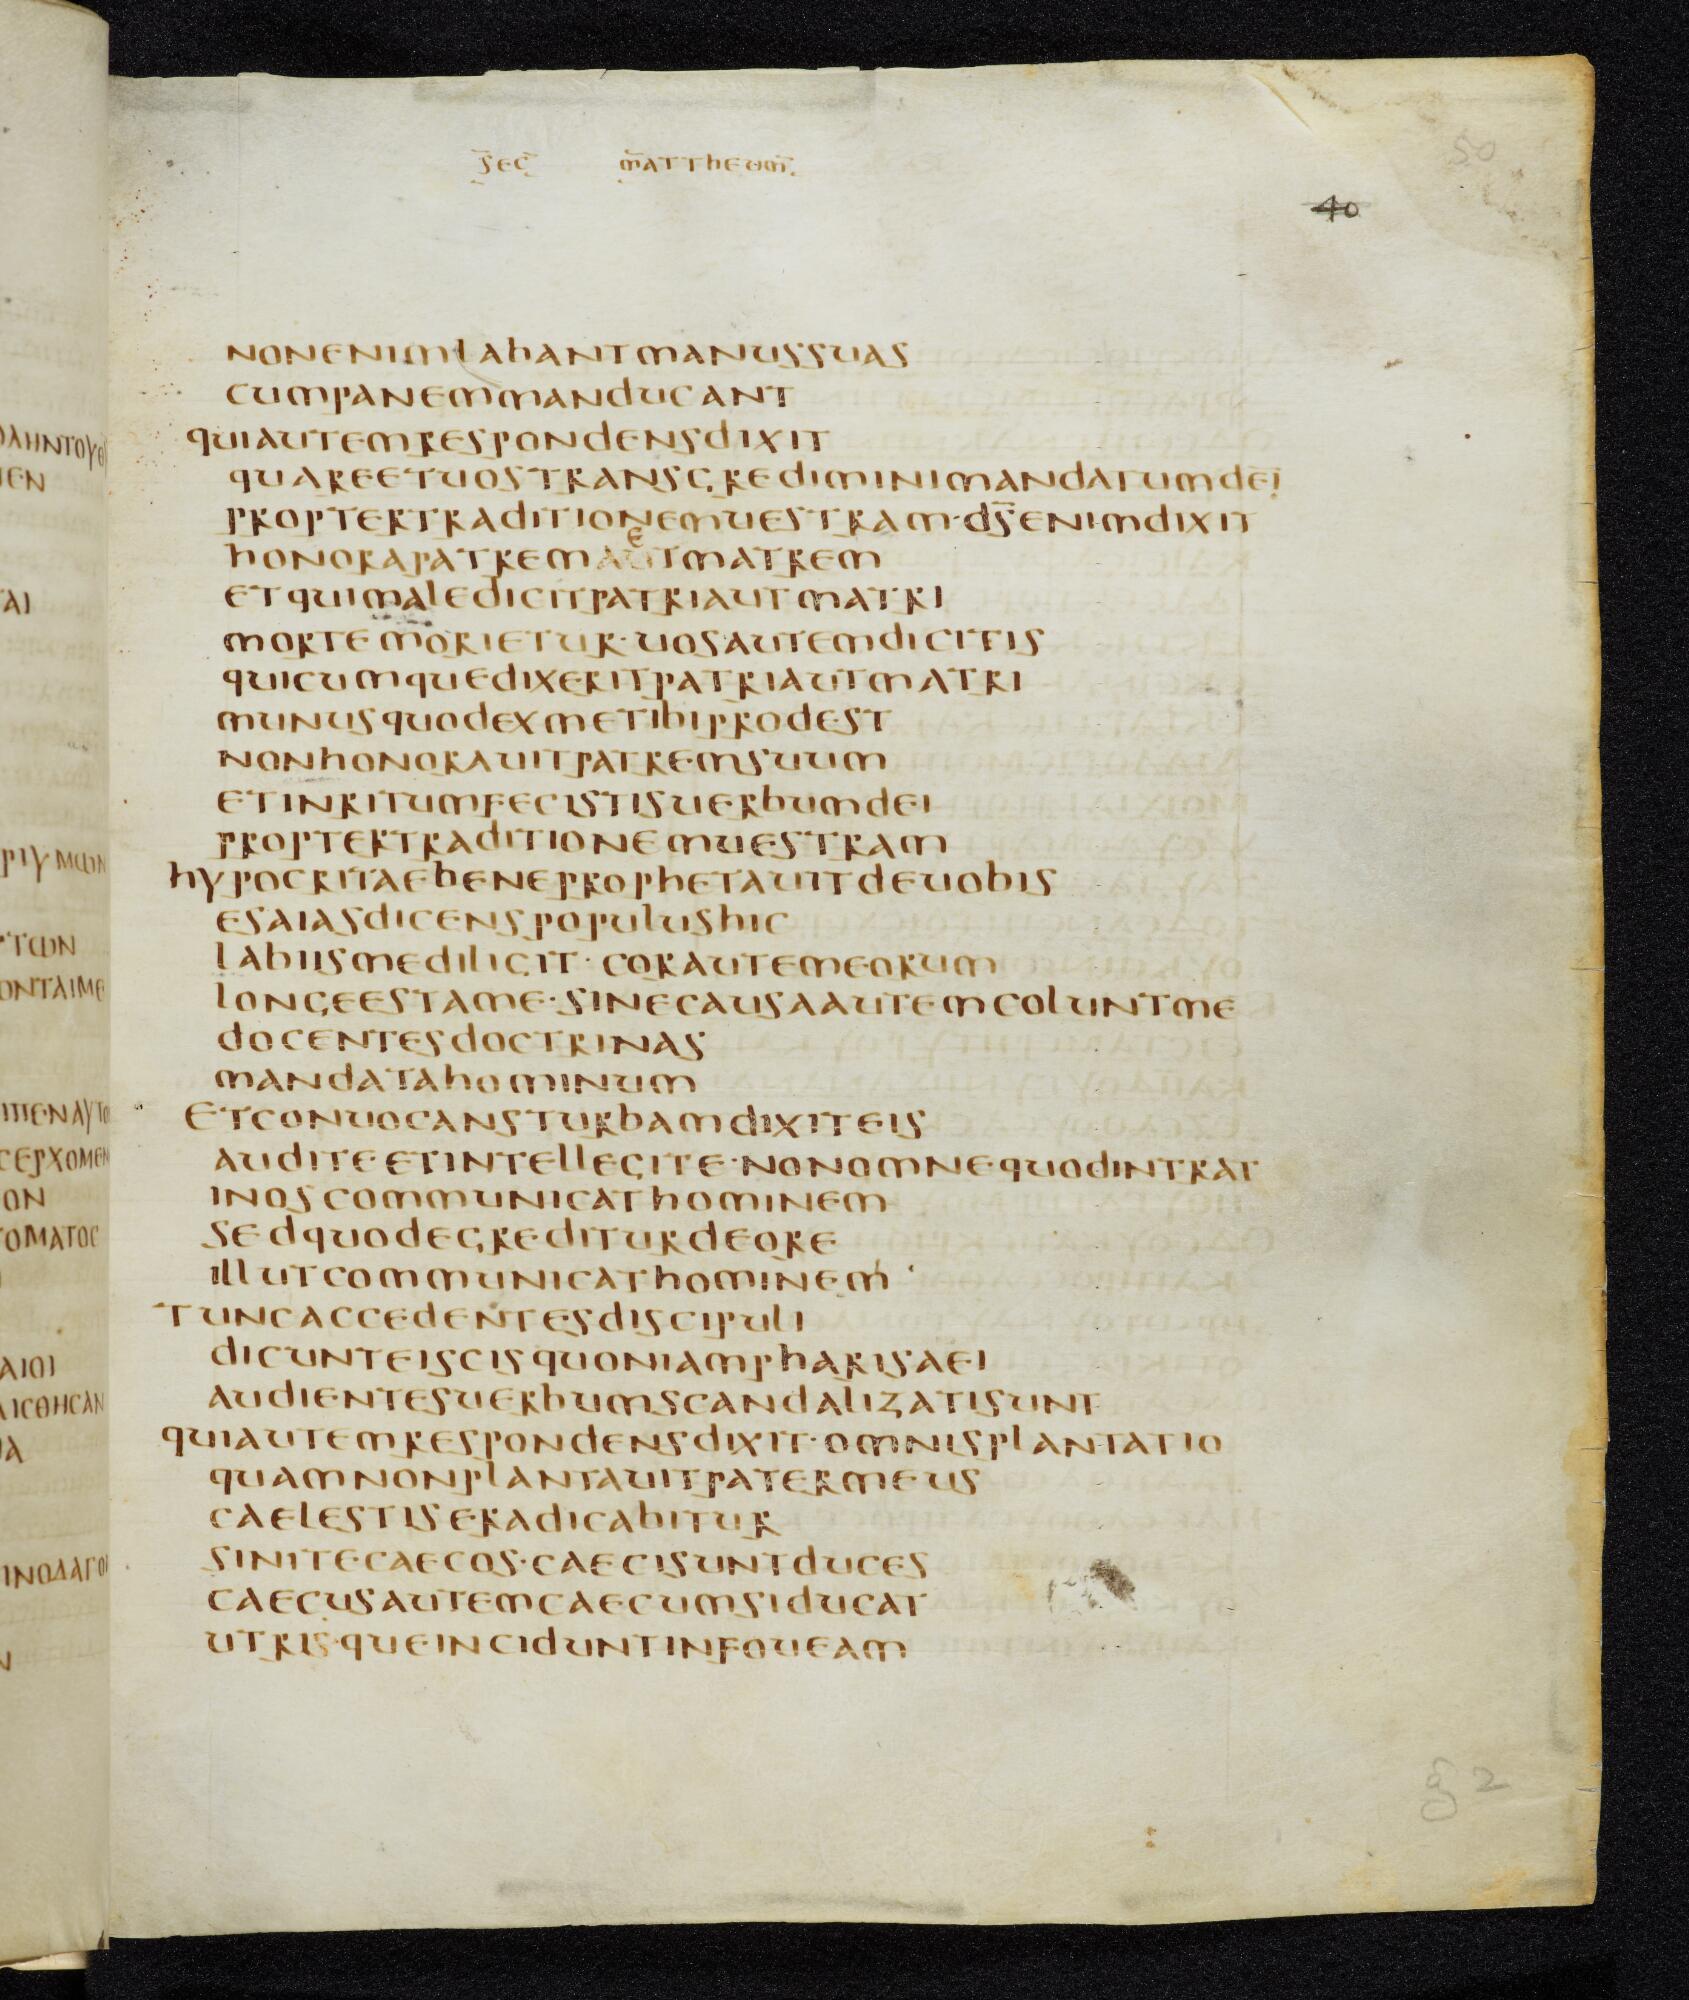 sec mattheum
50
40
nonenimlabantmanussuas
cumpanemmanducant
quiautemrespondensdixit
quareetuostransgrediminimandatumdei
proptertraditionemuestram·dsenimdixit
honorapatremautmatrem
e
etquimaledicitpatriautmatri
mortemorietur·uosautemdicitis
quicumquedixeritpatriautmatri
munusquodexmetibiprodest
nonhonorauitpatremsuum
etinritumfecistisuerbumdei
proptertraditionemuestram
hypocritaebeneprophetauitdeuobis
esaiasdicenspopulushic
labiismediligit·corautemeorum
longeestame·sinecausaautemcoluntme
docentesdoctrinas
mandatahominum
etconuocansturbamdixiteis
auditeetintellegite·nonomnequodintrat
inoscommunicathominem
sedquodegrediturdeore
illutcommunicathominem
tuncaccedentesdiscipuli
dicunteiscisquoniampharisaei
audientesuerbumscandalizatisunt
quiautemrespondensdixit·omnisplantatio
quamnonplantauitpatermeus
caelestiseradicabitur
sinitecaecos·caecisuntduces
caecusautemcaecumsiducat
utris·queinciduntinfoueam
g 2